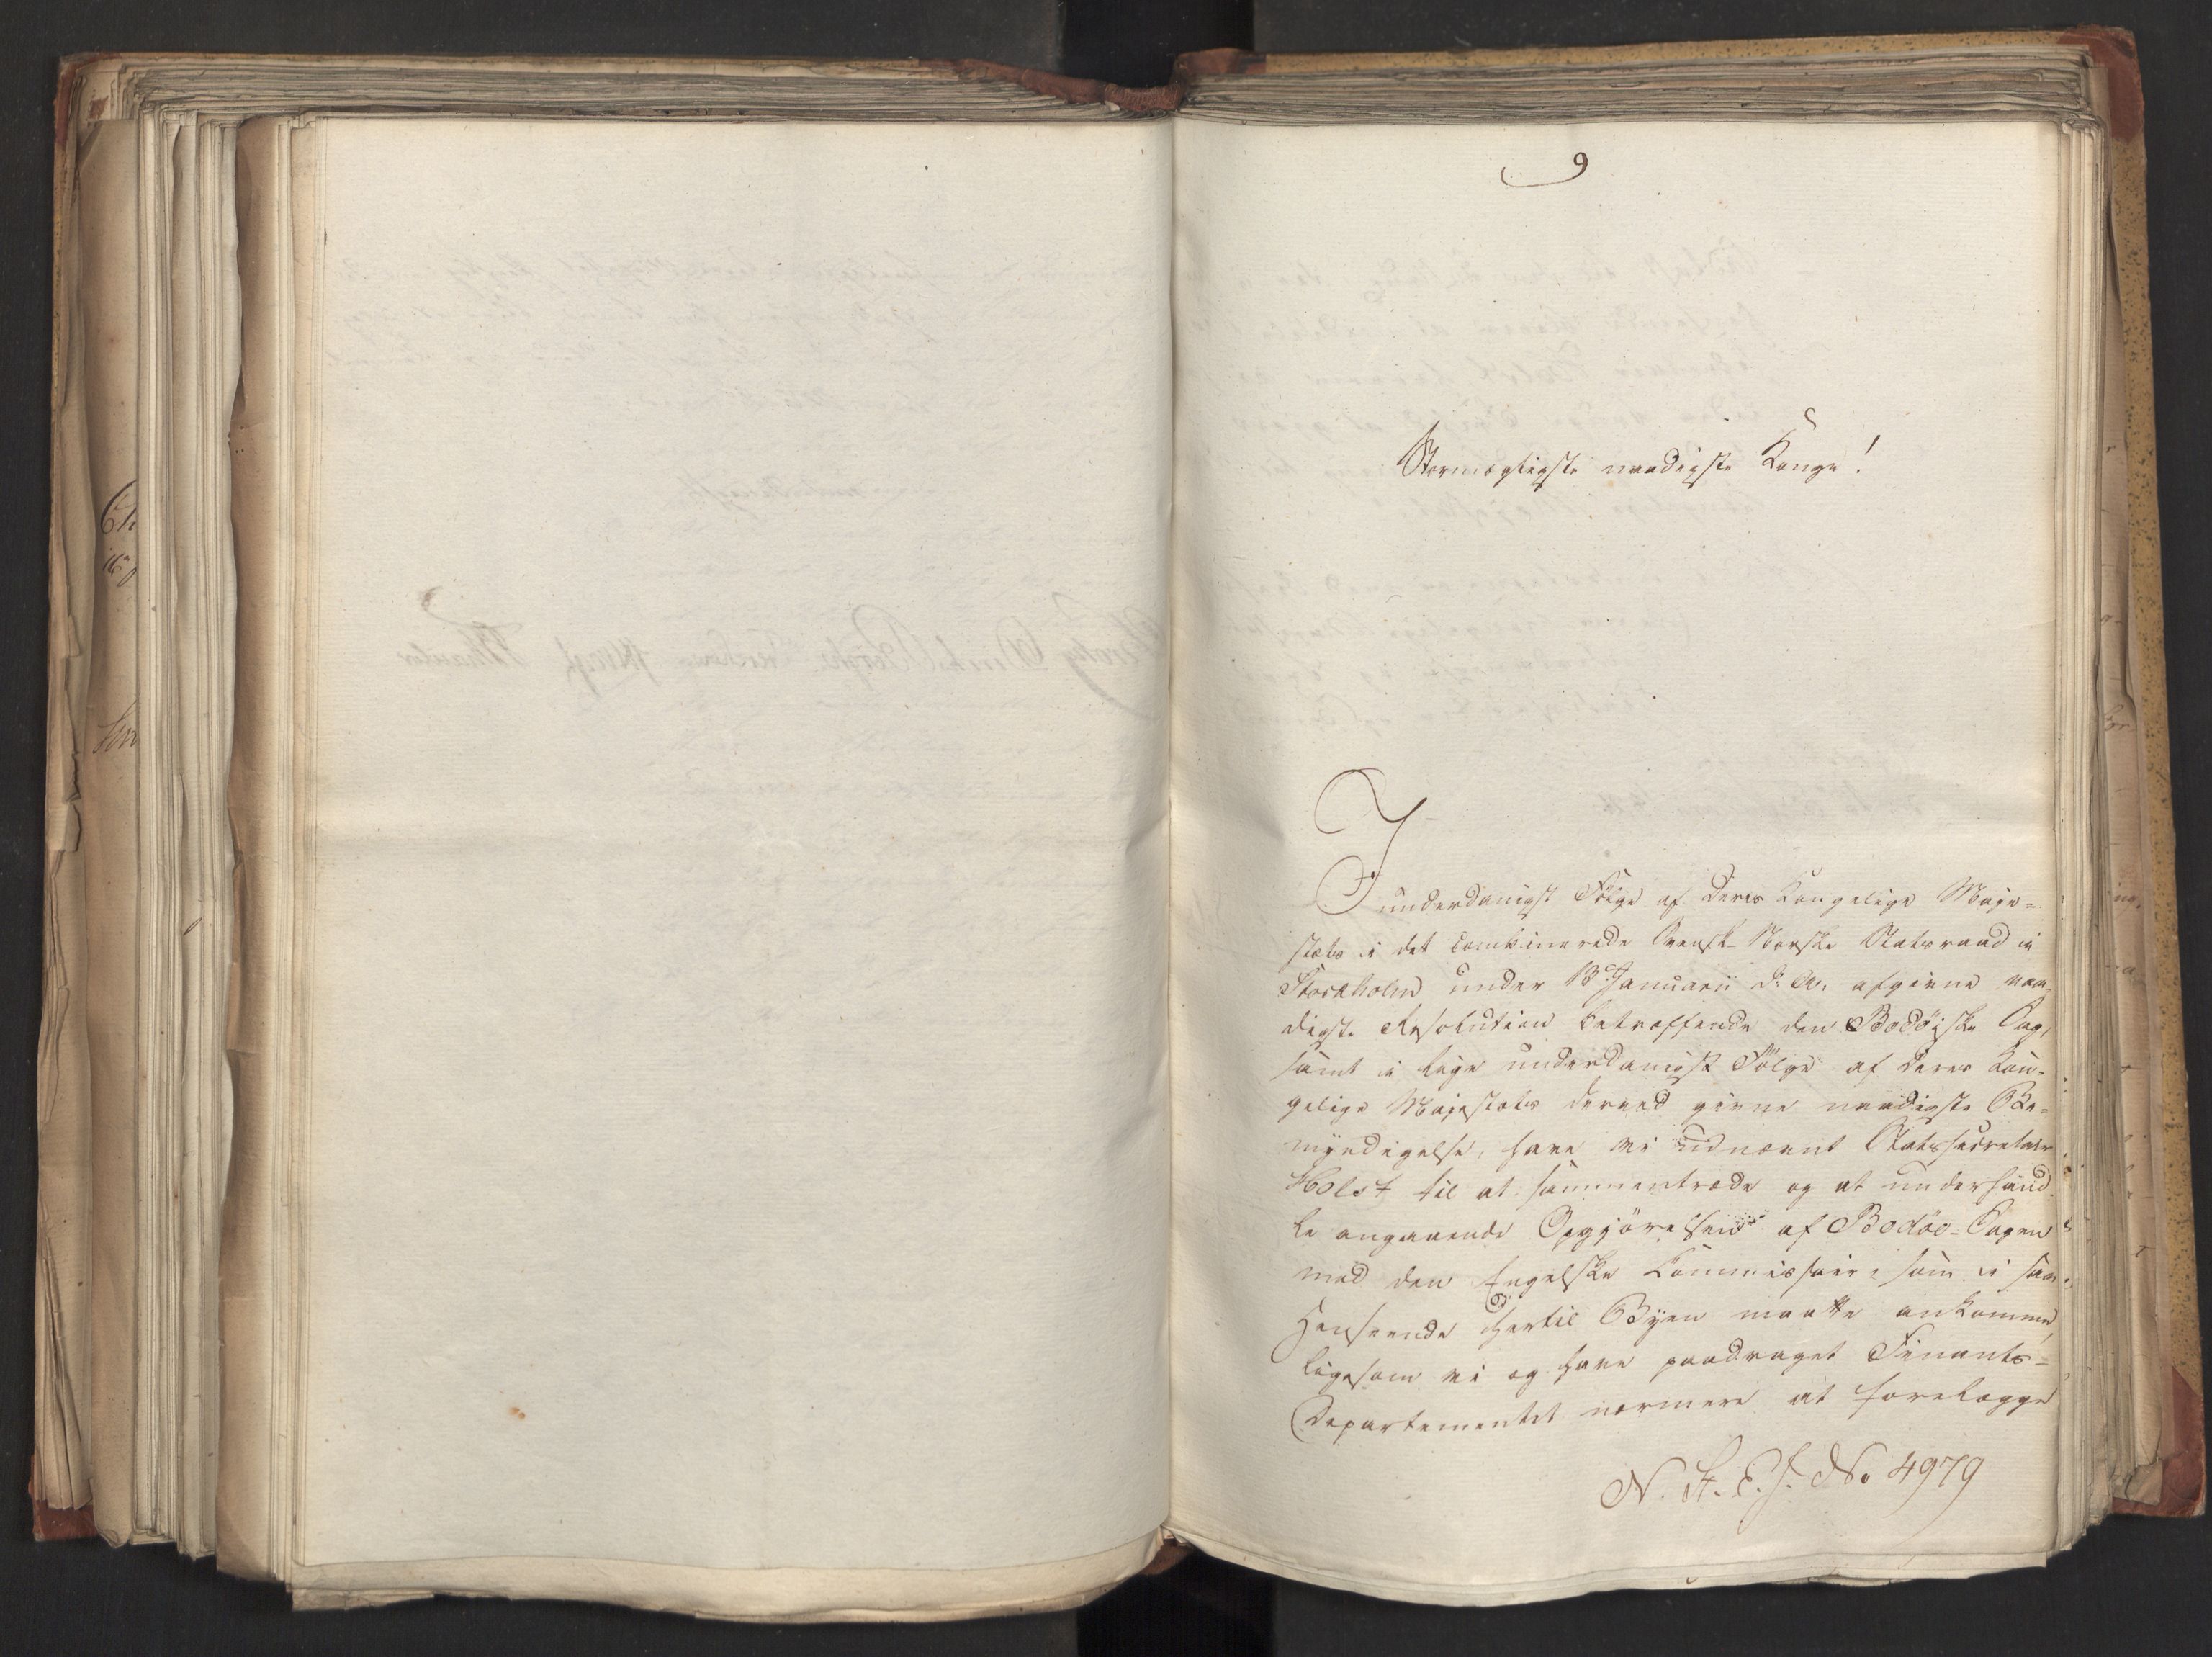 9
Stormægtigste naadigste Konge!
I
underdanigst Følge af Deres Kongelige Maje=
stæts i det combinerede Svensk-Norske Statsraad i
Stockholm under 13 Januarii d. A. afgivne naa=
digste Resolution betræffende den Bodøiske Sag,
samt i lige underdanigst Følge af Deres Kon=
gelige Majestæts derved givne naadigste Be=
myndigelse, have vi udnævnt Statssecretair
Holst til at sammentræde og at underhand=
le angaaende Opgjörelsen af Bodöe-Sagen
med den Engelske Commissair, som i saa
Henseende hertil Byen maatte ankomme,
ligesom vi og have paadraget Finants=
Departementet nærmere at forelægge
N. St. E. J. No 4979